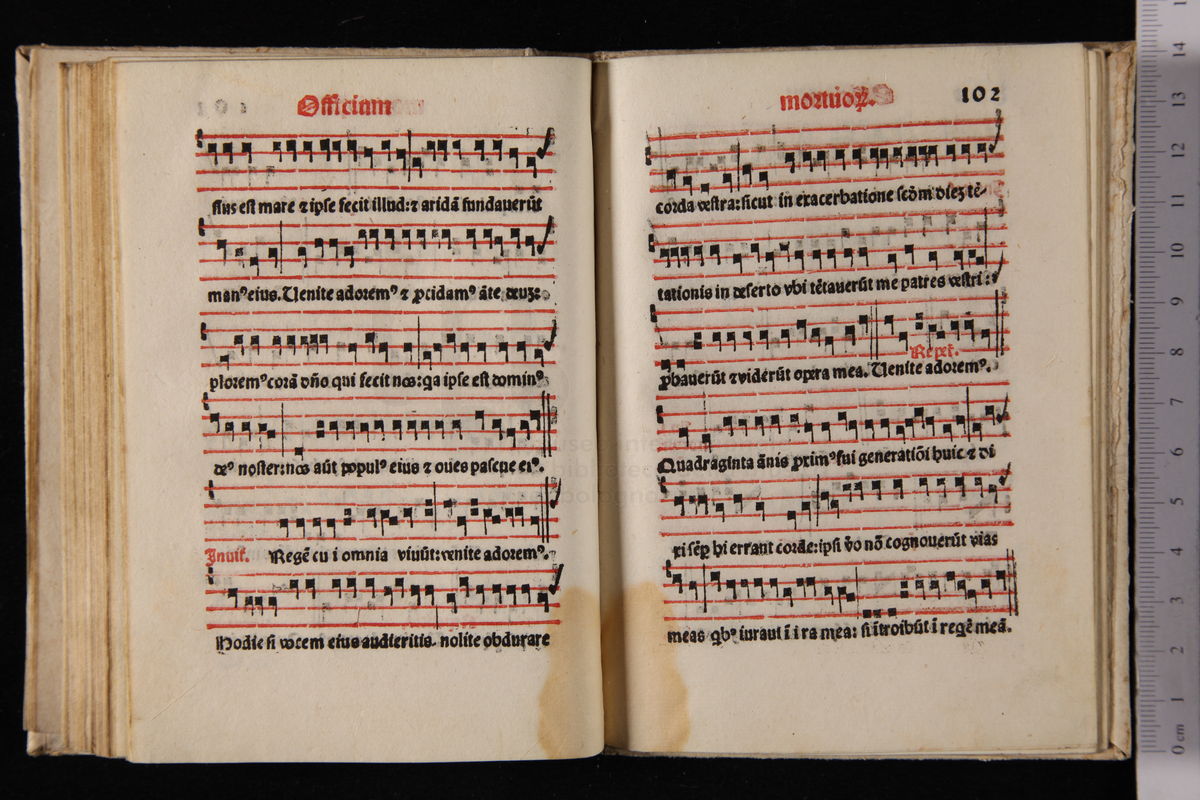 Officium
ſius eſt mare ⁊ ipſe fecit illud:⁊ aridã fundauerũt
manꝰ eius. Uenite adoremꝰ ⁊ ꝓcidamꝰ ãte deuʒ:
ploremꝰ corã dño qui fecit nos:qa ipſe eſt dominꝰ
deꝰ noſter:nos aũt populꝰ eius ⁊ oues paſcue eiꝰ.
Inuit. Regẽ cu i omnia viuũt:venite adoremꝰ.
Hodie ſi vocem eius audieritis. nolite obdurare
mortuoꝝ. 102
corda veſtra:ſicut in exacerbatione ſcðm dieʒ tẽ-
tationis in deſerto vbi tẽtauerũt me patres veſtri:
Repet.
ꝓbauerũt ⁊ viderũt opera mea. Uenite adoremꝰ.
Quadraginta ãnis ꝓximꝰ fui generatiõi huic ⁊ di
xi ſẽp hi errant corde:ipſi ṽo nõ cognouerũt vias
meas qbꝰ iuraui ĩ i ra mea: ſi ĩtroibũt ĩ regẽ meã.
14
13
12
11
10
9
8
7
6
5
4
3
2
1
0 cm